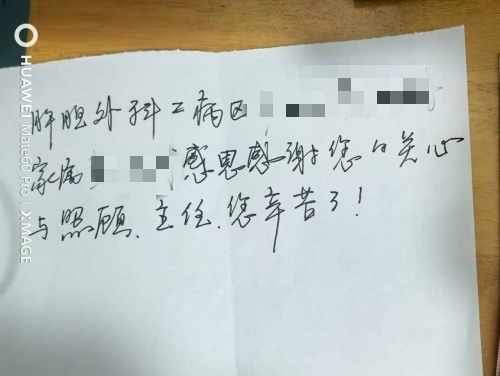 肝胆外科二病区
家属 感恩感谢您的关心
与照顾、主任、您辛苦了!
HUAWEI Mate60 Pro | XMAGE